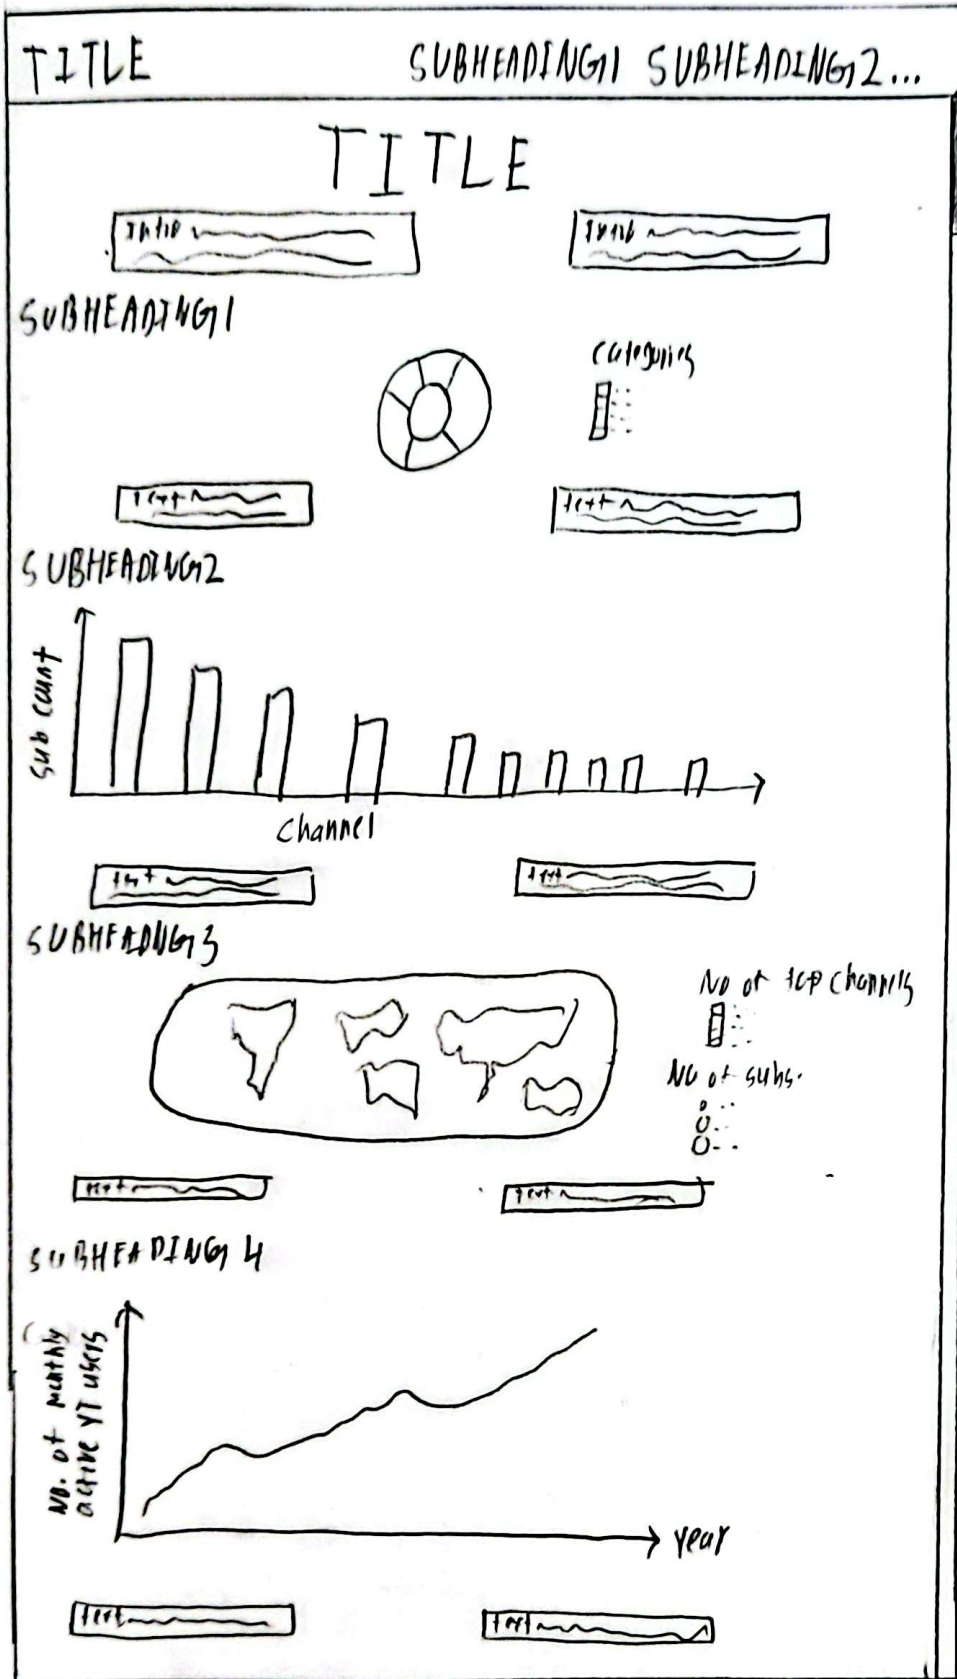 TITLE SUBHEADING1 SUBHEADING2...
TITLE
Intro
Intro
SUBHEADING1
Categories
text
text
SUBHEADING2
Sub count
Channel
text
text
SUBHEADNG3
No of top channels
No of subs.
text
text
SUBHEADING 4
No. of monthly
active YT users
year
text
text